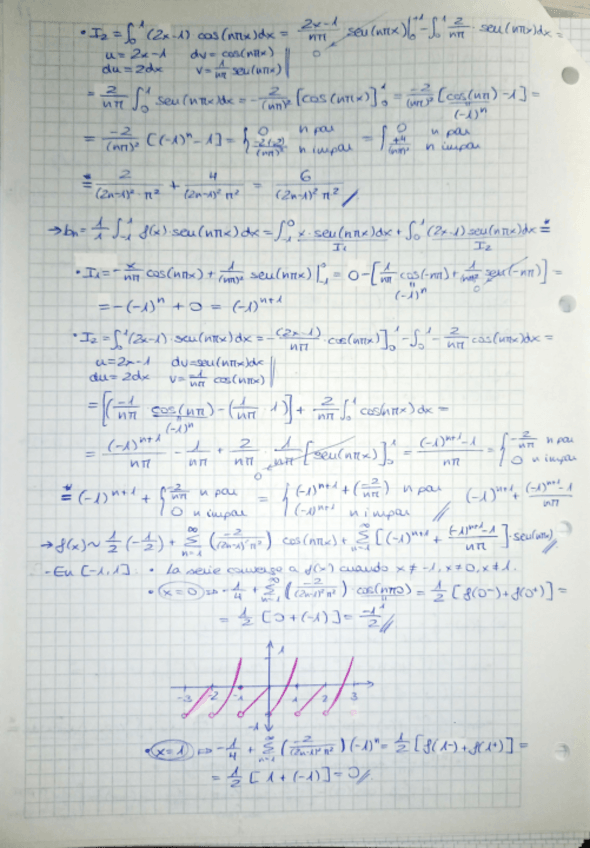 • I₂ = ∫₀¹ (2x-1) cos(nπx)dx = (2x-1)/(nπ) seu(nπx)]₀¹ - ∫₀¹ 2/(nπ) · seu(nπx)dx =
u = 2x-1   dv = cos(nπx)   0
du = 2dx   v = 1/(nπ) seu(nπx)
= 2/(nπ) ∫₀¹ seu(nπx)dx = -2/(nπ)² [cos(nπx)]₀¹ = -2/(nπ)² [cos(nπ) - 1] =
(-1)ⁿ
= -2/(nπ)² [(-1)ⁿ - 1] = { 0 n par   -2(-2)/(nπ)² n impar = { 0 n par   +4/(nπ)² n impar
= 2/((2n-1)²·π²) + 4/((2n-1)²π²) = 6/((2n-1)²π²) //
→ bₙ = 1/1 ∫₋₁¹ f(x)·seu(nπx)dx = ∫₋₁⁰ x·seu(nπx)dx + ∫₀¹ (2x-1) seu(nπx)dx =
I₁   I₂
• I₁ = -x/(nπ) cos(nπx) + 1/(nπ)² seu(nπx)|₋₁⁰ = 0 - [1/(nπ) cos(-nπ) + 1/(nπ)² seu(-nπ)] =
(-1)ⁿ   0
= -(-1)ⁿ + 0 = (-1)ⁿ⁺¹
• I₂ = ∫₀¹ (2x-1)·seu(nπx)dx = -(2x-1)/(nπ) · cos(nπx)]₀¹ - ∫₀¹ - 2/(nπ) cos(nπx)dx =
u = 2x-1   dv = seu(nπx)dx
du = 2dx   v = -1/(nπ) cos(nπx)
= [(-1/(nπ) cos(nπ) - (1/(nπ) · 1)] + 2/(nπ) ∫₀¹ cos(nπx)dx =
(-1)ⁿ
= (-1)ⁿ⁺¹/(nπ) - 1/(nπ) + 2/(nπ) · 1/(nπ) [seu(nπx)]₀¹ = ((-1)ⁿ⁺¹-1)/(nπ) = { -2/(nπ) n par   0 n impar
0
= (-1)ⁿ⁺¹ + { -2/(nπ) n par   0 n impar = { (-1)ⁿ⁺¹ + (-2/(nπ)) n par   (-1)ⁿ⁺¹ n impar //   (-1)ⁿ⁺¹ + ((-1)ⁿ⁺¹-1)/(nπ)
→ f(x) ~ 1/2 (-1/2) + Σₙ₌₁^∞ (-2/((2n-1)²π²)) cos(nπx) + Σₙ₌₁^∞ [(-1)ⁿ⁺¹ + ((-1)ⁿ⁺¹-1)/(nπ)]·seu(nπx) //
- En [-1,1]. • La serie converge a f(x) cuando x ≠ -1, x ≠ 0, x ≠ 1.
• x=0 ⇒ -1/4 + Σₙ₌₁^∞ (-2/((2n-1)²π²)) cos(nπ0) = 1/2 [f(0⁻) + f(0⁺)] =
= 1/2 [0 + (-1)] = -1/2 //
1
-3 -2 -1 1 2 3
-1
• x=1 ⇒ -1/4 + Σₙ₌₁^∞ (-2/((2n-1)²π²)) (-1)ⁿ = 1/2 [f(1⁻) + f(1⁺)] =
= 1/2 [1 + (-1)] = 0 //